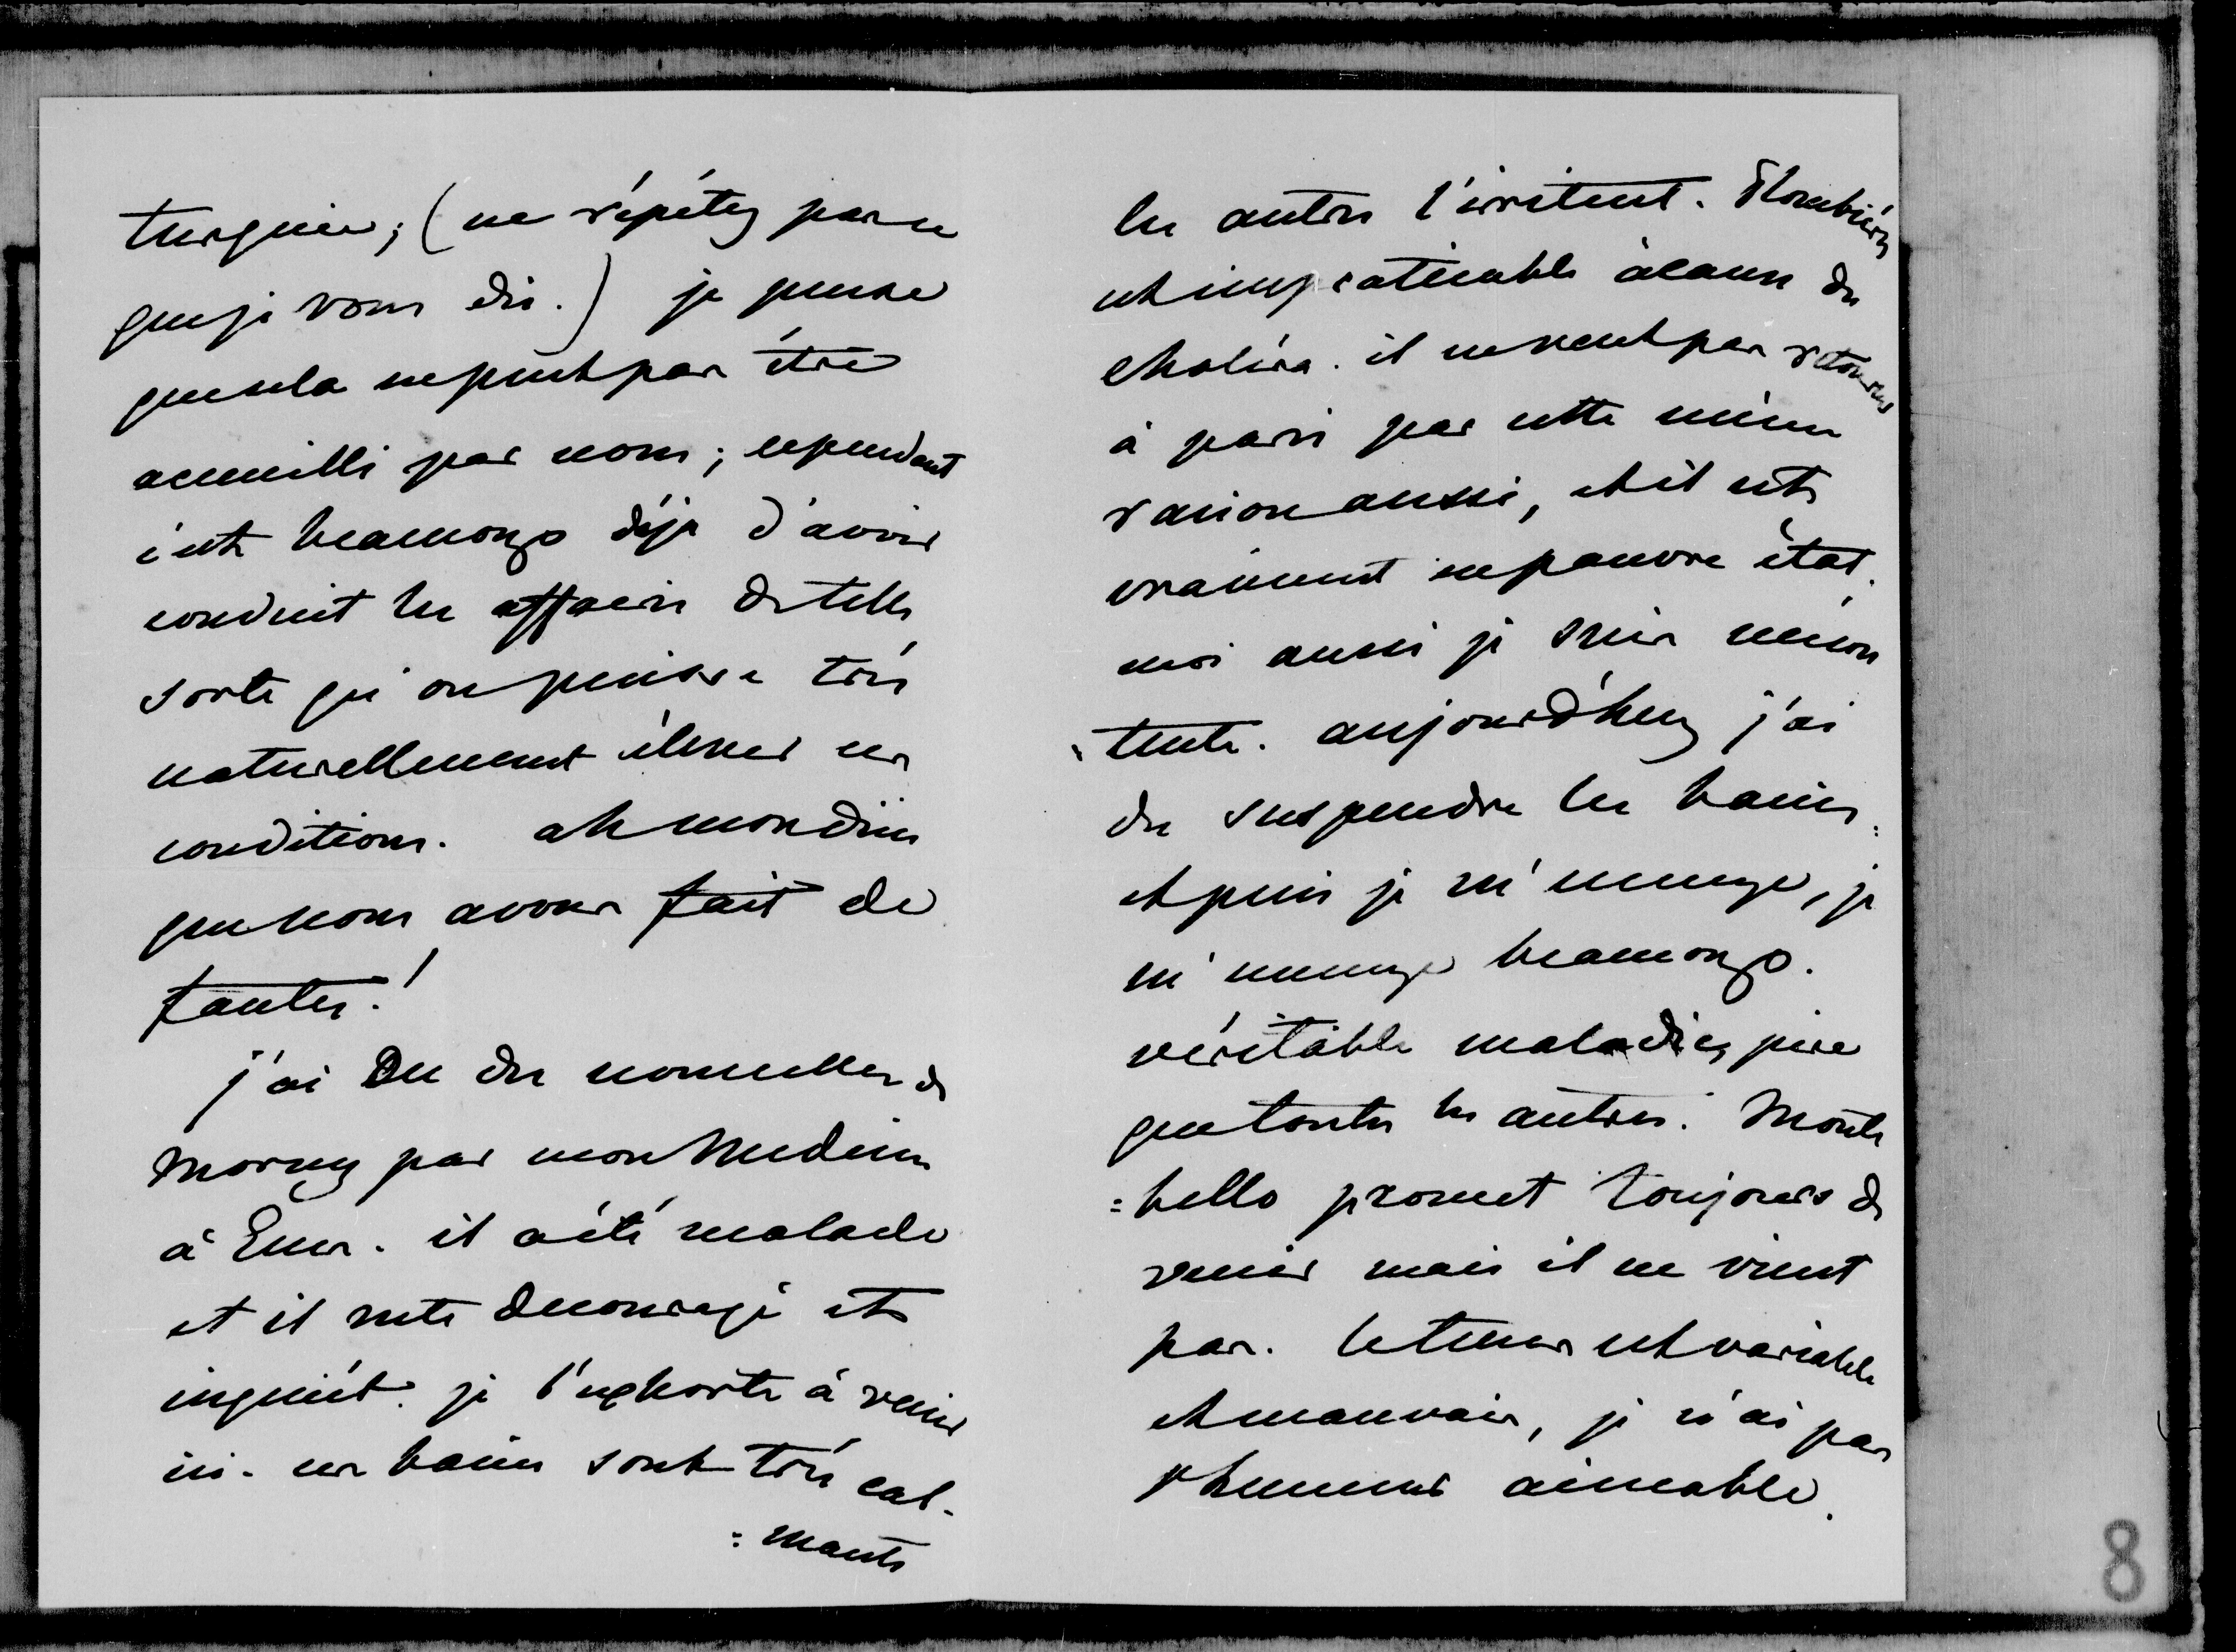 turquie; (ne répétez pas ce
que je vous dis.) je pense
que cela ne peut pas être
accueilli par nous; cependant
c'est beaucoup déja d'avoir
conduit les affaires de telle
sorte qu'on puisse très
naturellement élever ces
conditions. ah mon dieu
que nous avons fait de
fautes!
j'ai eu des nouvelles de
Morny par mon Medecin
à Ems. il a été malade
et il reste decouragé et
inquiét. je l'exhorte à venir
ici. ces bains sont très cal-
=mants
les autres l'irritent. Plombières
est impraticable à cause du
choléra. il ne veut pas retourner
à paris par cette même
raison aussi, et il est
vraiment en pauvre état.
moi aussi je suis mécon
=tente. aujourd'huy j'ai
du suspendre les bains.
et puis je m'ennuye, je
m'ennuye beaucoup.
véritable maladie, pire
que toutes les autres. Monte
=bello promet toujours de
venir mais il ne vient
pas. le tems est variable
et mauvais, je n'ai pas
l'humeur aimable.
8